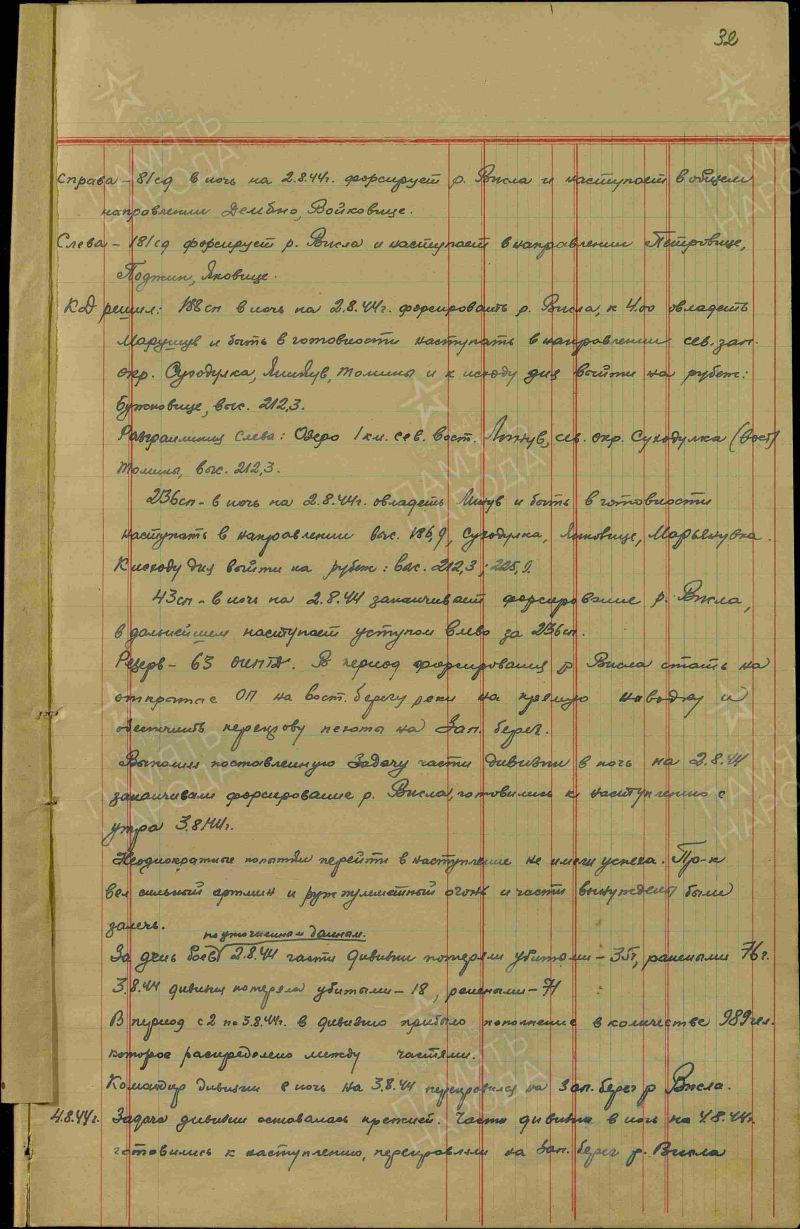 32
Справа – 81сд в ночь на 2.8.44г. форсирует р. Висла и наступает в общем
направлении Дембно, Войковице.
Слева – 181сд форсирует р. Висла и наступает в направлении Петровице,
Поджин, Яковице.
КД решил: 188сп в ночь на 2.8.44г. форсировать р. Висла, к 4.00 овладеть
Марушув и быть в готовности наступать в направлении сев. зап.
окр. Суходулка, Томины и к исходу дня выйти на рубеж:
Бужковице, выс. 212,3.
Разгранлиния слева: Озеро 1 км. сев. вост. Линув, сев. окр. Суходулка (вост)
Томины, выс. 212,3.
236сп – в ночь на 2.8.44г. овладеть Линув и быть в готовности
наступать в направлении выс. 186,9, Суходулка, Янковице, Марьянувка.
К исходу дня выйти на рубеж: выс. 212,3; 225,9.
43сп – в ночь на 2.8.44 заканчивает форсирование р. Висла,
в дальнейшем наступает уступом влево за 236сп.
Резерв – 63 оиптд. В период форсирования р Висла стать на
открытые ОП на вост. берегу реки на прямую наводку и
обеспечить переправу пехоты на Зап. берег.
Выполняя поставленную задачу части дивизии в ночь на 2.8.44
заканчивали форсирование р. Висла, готовились к наступлению с
утра 3.8.44г.
Неоднократные попытки перейти в наступление не имели успеха. Пр-к
вел сильный артмин и ружпулеметный огонь и части вынуждены были
залечь.
по уточненным данным.
За день боев 2.8.44 части дивизии потеряли убитыми – 35г, ранеными 76г.
3.8.44 дивизия потеряла убитыми – 18, ранеными – 71
В период с 2 по 3.8.44г. в дивизию прибыло пополнение в количестве 989чел.
которое распределено между частями.
Командир дивизии в ночь на 3.8.44 переправился на Зап. берег р Висла.
4.8.44г. Задача дивизии оставалась прежней. Части дивизии в ночь на 4.8.44г.
готовились к наступлению, переправляли на Зап. берег р. Висла
ПАМЯТЬ НАРОДА